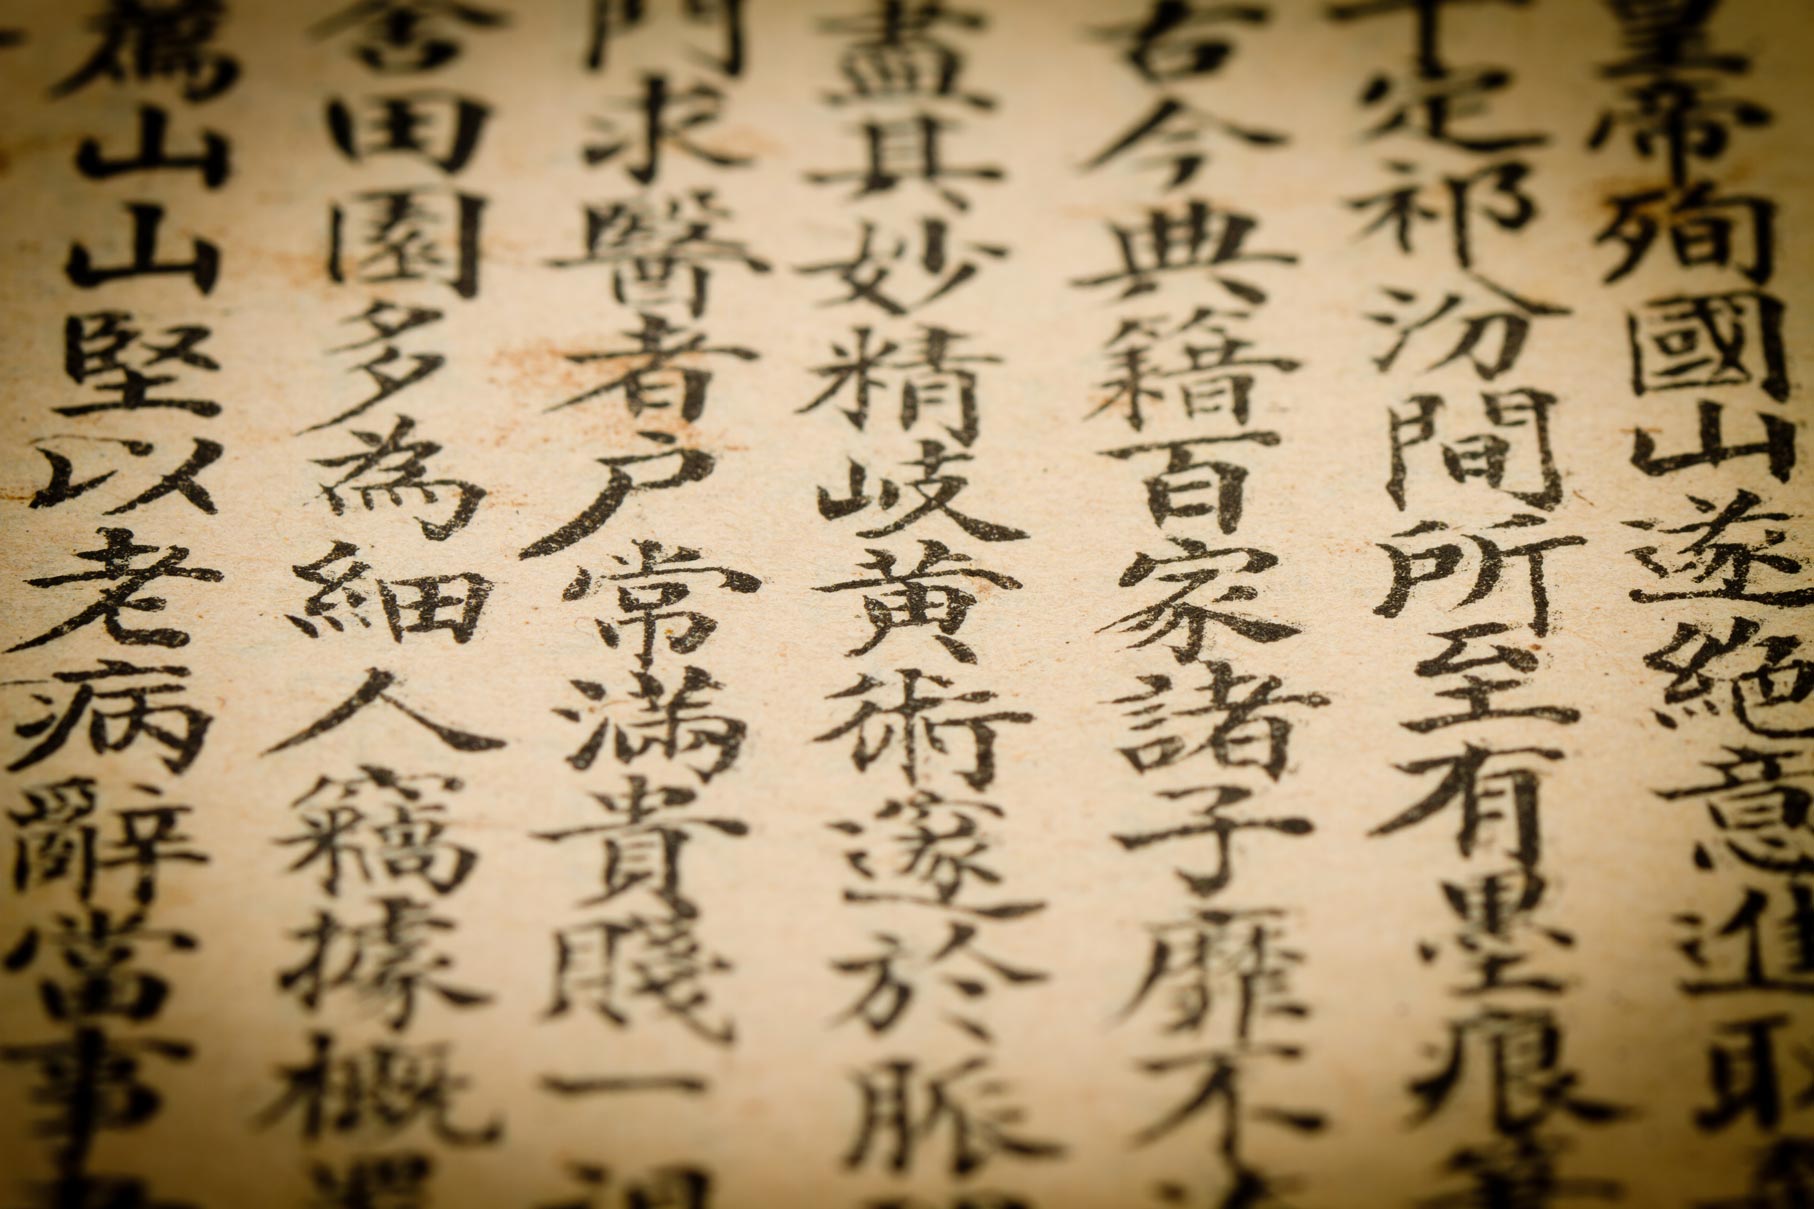 皇帝殉國山遂絕意進取
十定祁汾間所至有墨痕
古今典籍百家諸子靡不
盡其妙精岐黃術邃於脈
門求醫者戶常滿貴賤一視
舍田園多為細人竊據概
薦山山堅以老病辭當事